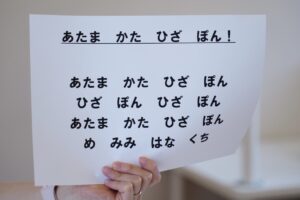 あたま　かた　ひざ　ぽん！
あたま　かた　ひざ　ぽん
ひざ　ぽん　ひざ　ぽん
あたま　かた　ひざ　ぽん
め　みみ　はな　くち